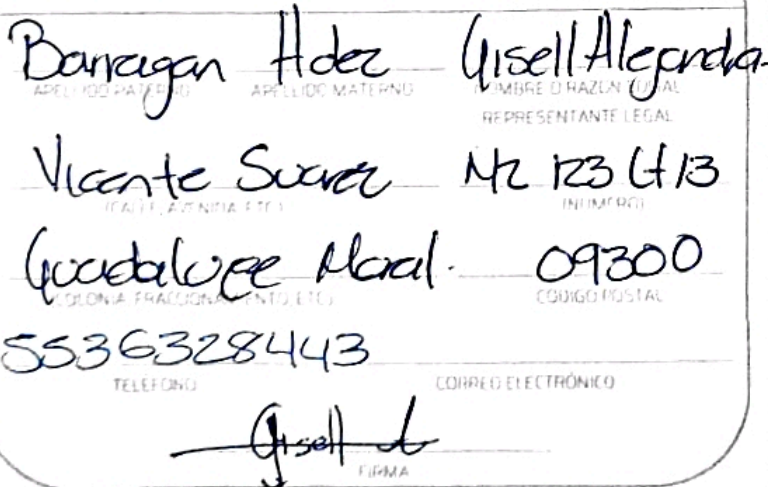 Barragan Hdez Gisell Alejandra
APELLIDO PATERNO APELLIDO MATERNO NOMBRE O RAZÓN SOCIAL
REPRESENTANTE LEGAL
Vicente Suarez Mz 123 Lt 13
(CALLE, AVENIDA, ETC.) (NUMERO)
Guadalupe Moral. 09300
(COLONIA, FRACCIONAMIENTO, ETC.) CODIGO POSTAL
5536328443
TELÉFONO CORREO ELECTRÓNICO
Gisell
FIRMA